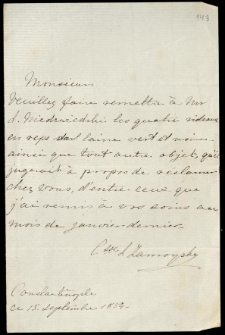 Monsieur
Veuillez faire remettre à Mr
L. Niedzwiedzki les quatre rideaux
en reps de laine vert et noir
ainsi que tout autre objet, qu'il
jugerait à propos de réclamer
chez vous, d'entre ceux que
j'ai remis à vos soins au
mois de janvier dernier.
Cte L Zamoyski
Constantinople
ce 15 septembre